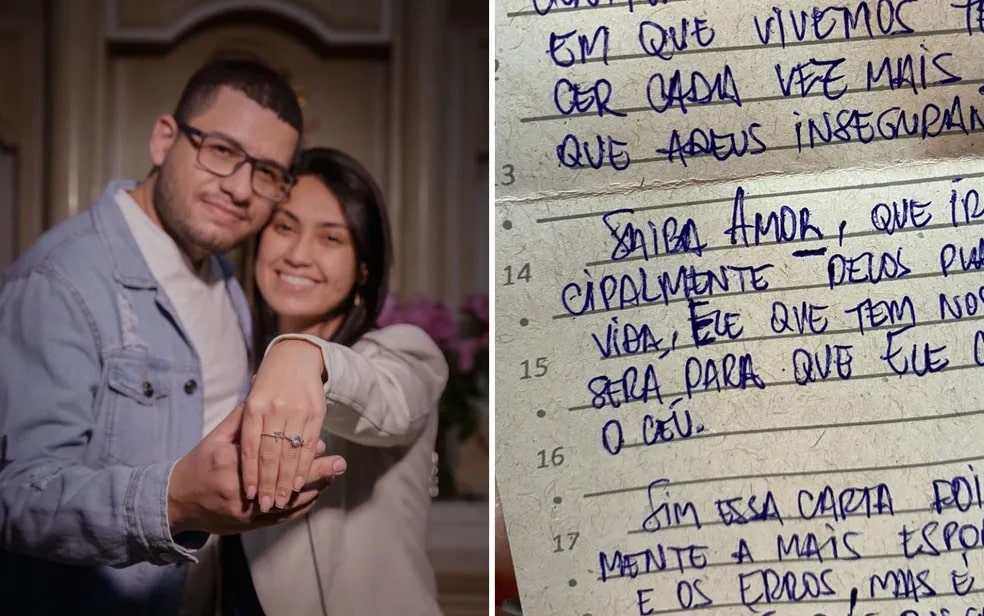 EM QUE VIVEMOS TE
CER CADA VEZ MAIS
QUE A DEUS INSEGURAN
13
SAIBA AMOR, QUE IR
14
CIPALMENTE PELOS PLA
VIDA, ELE QUE TEM NOS
15
SERA PARA QUE ELE C
O CÉU.
16
SIM ESSA CARTA FOI
17
MENTE A MAIS ESPO
E OS ERROS, MAS É